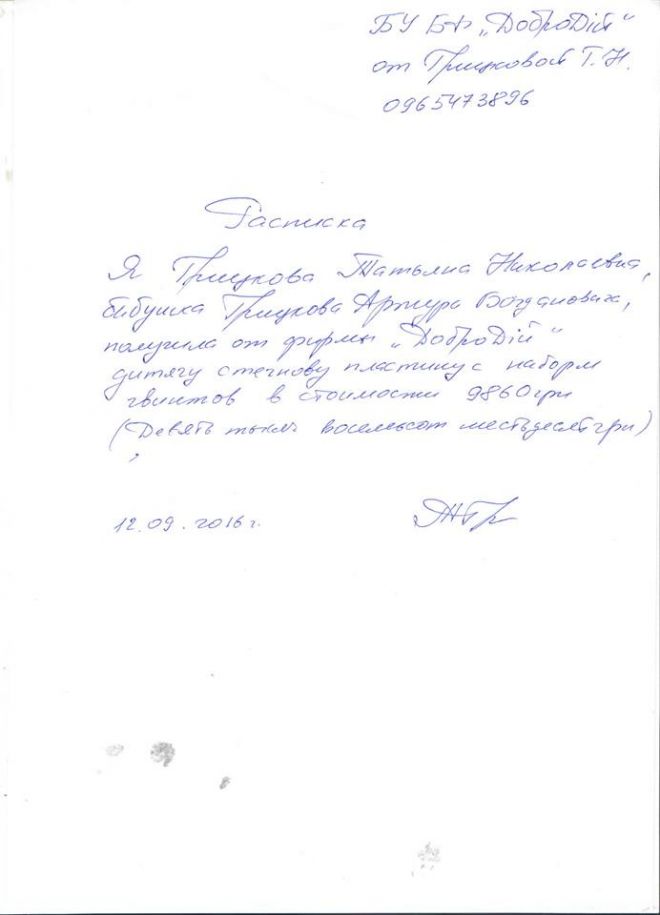 БУ БФ „ДоброДій“
от Грицковой Т.Н.
0965473896
Расписка
Я Грицкова Татьяна Николаевна,
бабушка Грицкова Артура Богдановича,
получила от фирмы „ДоброДій“
дитячу стегнову пластину с набором
гвинтов в стоимости 9860грн
(Девять тысяч восемьсот шестьдесят грн)
12.09.2016г.